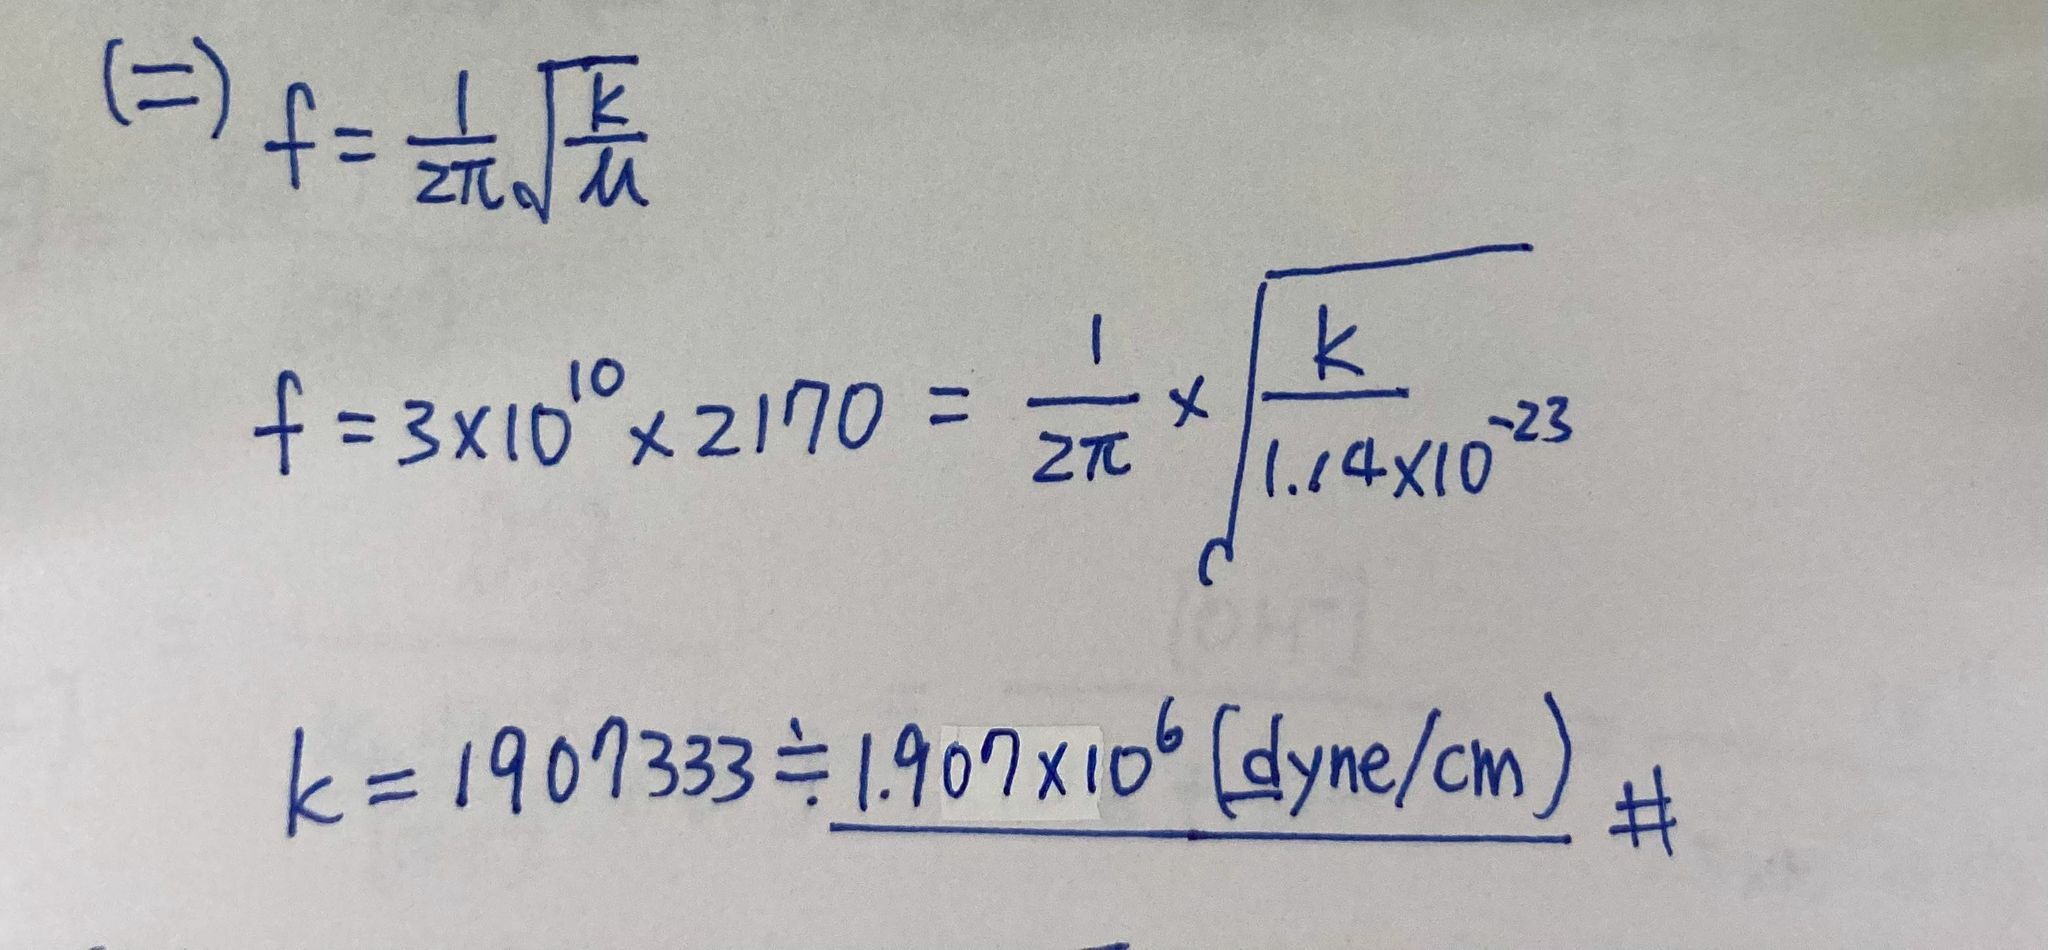 (二) f = 1/2π √(k/μ)
f = 3×10^10 × 2170 = 1/2π × √(k/1.14×10^-23)
k = 1907333 ≒ 1.907×10^6 (dyne/cm) #